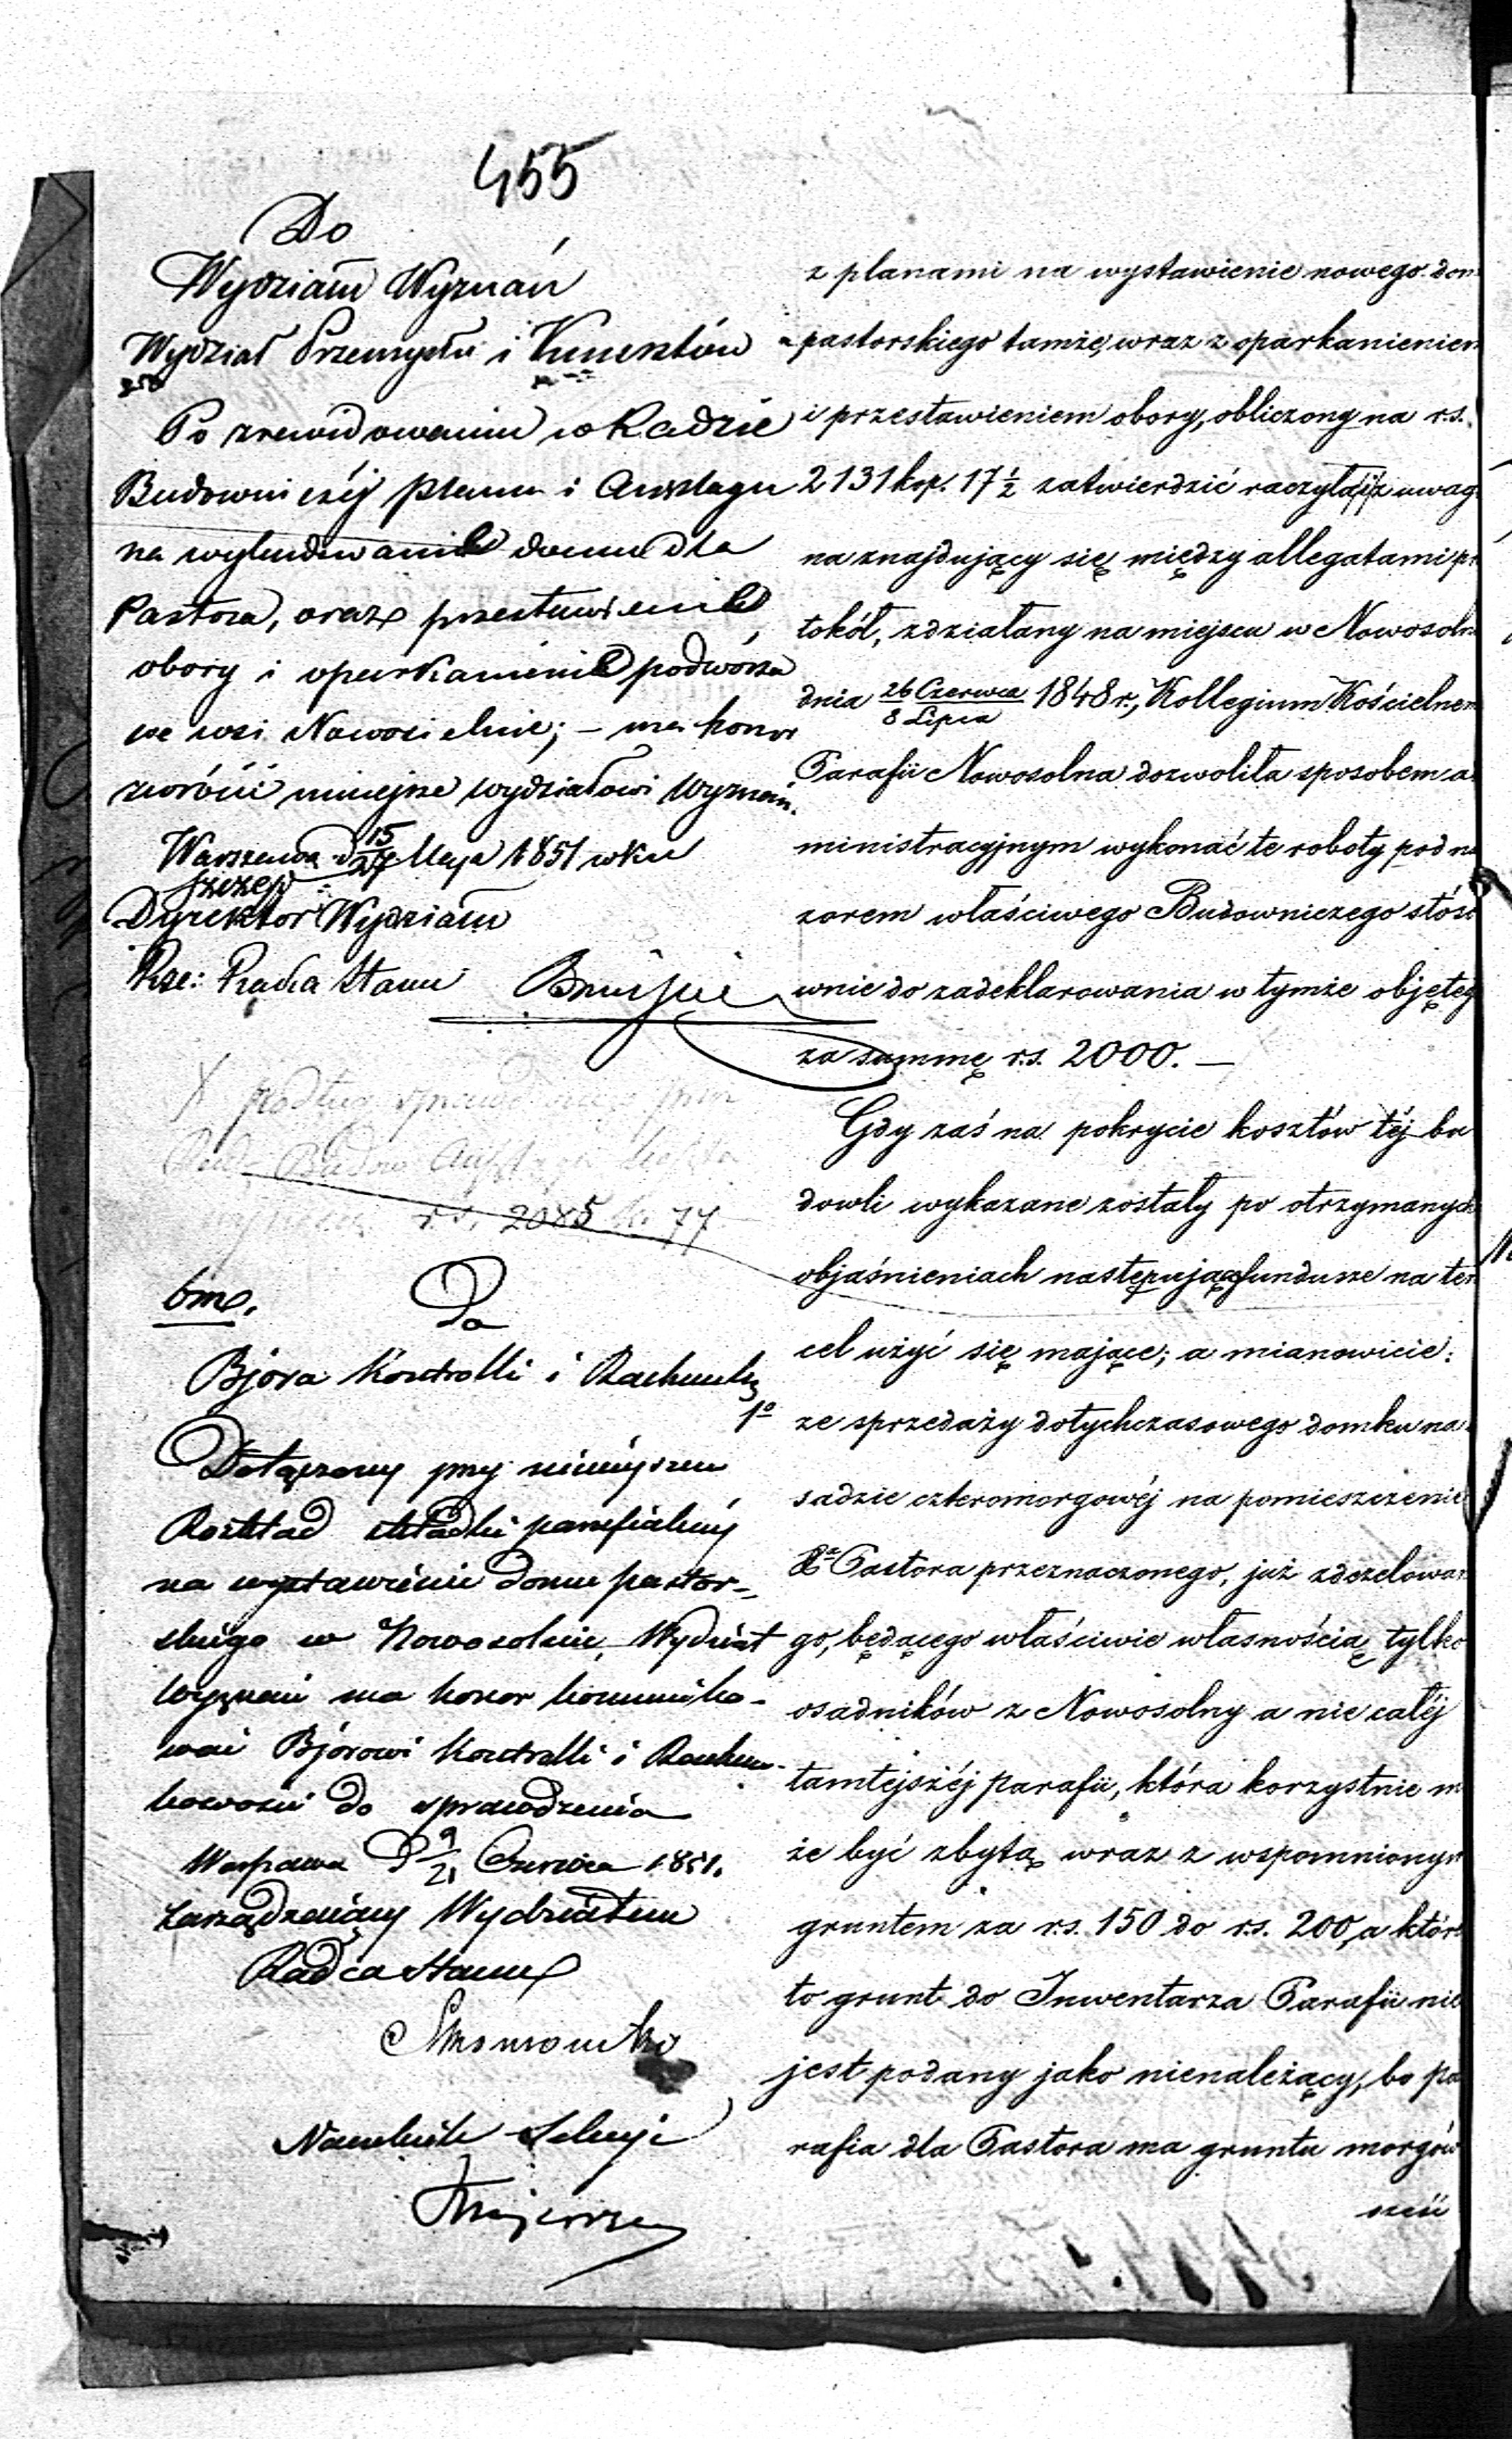 455
Do
Wydziału Wyznań
Wydział Przemysłu i Kunsztów
Po zrewidowaniu w Radzie
Budowniczéj planu i Anszlagu
na wybudowanie domu dla
Pastora, oraz przestawienie
obory i oparkanienie podwórza
we wsi Nowosolnie; – ma honor
zwrócić niniejsze wydziałowi Wyznań.
Warszawa d 15/27 Maja 1851 roku
Dyrektor Wydziału
Rze: Radca Stanu
X podług
Rady Budow Anszlag
r.s. 2085 k. 77
Do
Bjóra Kontrolli i Rachunk
Dołączony przy niniejszem
Rozkład składki parafialnéj
na wystawienie domu pastor-
skiego w Nowosolnie, Wydział
Wyznań ma honor kommuniko-
wać Bjórowi Kontrolli i Rachun-
kowości do sprawdzenia
Warszawa D 9/21 Czerwca 1851.
Zarządzający Wydziałem
Radca Stanu
Naczelnik Sekcyi
z planami na wystawienie nowego dom
pastorskiego tamże, wraz z oparkanieniem
i przestawieniem obory, obliczony na r.s.
2131 kop. 17 ½ zatwierdzić raczyła, i z uwag
na znajdujący się między allegatami pr
tokół, zdziałany na miejscu w Nowosoln
dnia 26 Czerwca/8 Lipca 1848 r., Kollegium Kościelnem
Parafii Nowosolna dozwoliła sposobem a
ministracyjnym wykonać te roboty pod na
zorem właściwego Budowniczego stóso
wnie do zadeklarowania w tymże objęteg
za summę r.s. 2000. –
Gdy zaś na pokrycie kosztów téj bu
dowli wykazane zostały po otrzymanych
objaśnieniach następujące fundusze na ten
cel użyć się mające; a mianowicie:
1º ze sprzedaży dotychczasowego domku na
sadzie czteromorgowéj na pomieszczenie
Pastora przeznaczonego, już zdezelowan
go, będącego właściwie własnością tylko
osadników z Nowosolny a nie całéj
tamtejszéj parafii, która korzystnie m
że być zbytą wraz z wspomnionym
gruntem za r.s. 150 do r.s. 200, a któr
to grunt do Inwentarza Parafii nie
jest podany jako nienależący, bo pa
rafia dla Pastora ma gruntu morgów
sześć